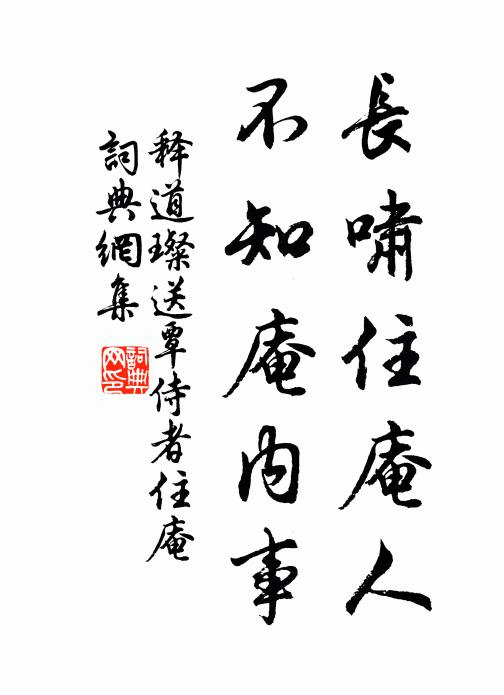 長嘯住庵人
不知庵内事
释道璨送覃侍者住庵
詞典網集
詞典网印